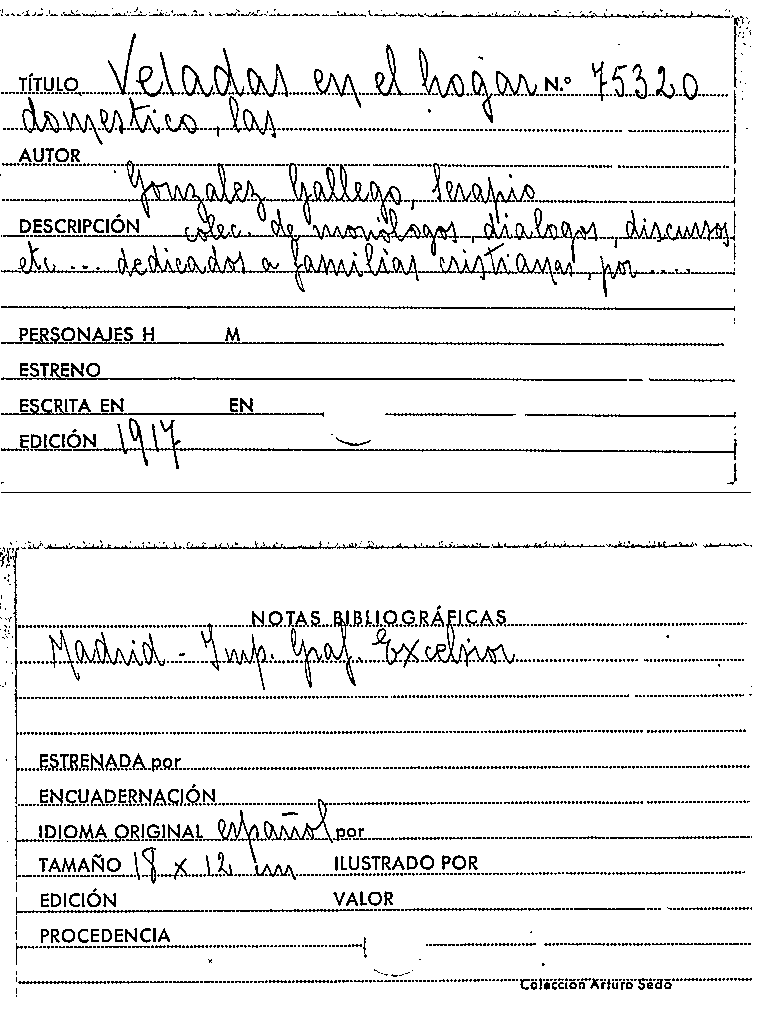 TÍTULO Veladas en el hogar N.º 75320
domestico, las
AUTOR
Gonzalez Gallego, Serapio
DESCRIPCIÓN colec. de monólogos, dialogos, discursos
etc... dedicados a familias cristianas, por....
PERSONAJES H M
ESTRENO
ESCRITA EN EN
EDICIÓN 1917
NOTAS BIBLIOGRÁFICAS
Madrid - Imp. Graf. Excelsior
ESTRENADA por
ENCUADERNACIÓN
IDIOMA ORIGINAL español por
TAMAÑO 18 x 12 cm ILUSTRADO POR
EDICIÓN VALOR
PROCEDENCIA
Colección Arturo Sedó